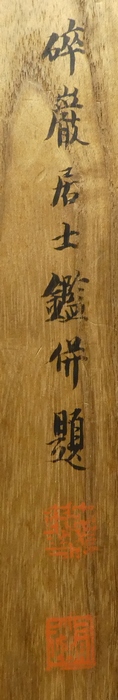 碎巖居士鑑併題